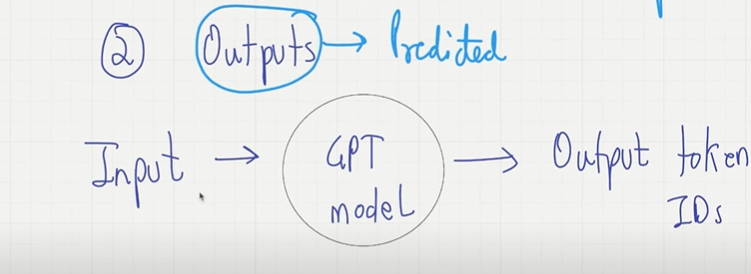 ② Outputs → Predicted
Input → GPT model → Output token IDs